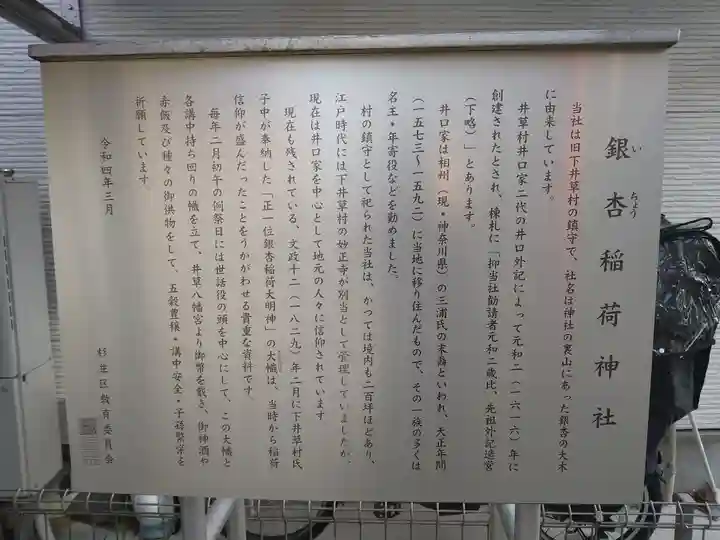 銀杏稲荷神社
いちょう
当社は旧下井草村の鎮守で、社名は神社の裏山にあった銀杏の大木
に由来しています。
井草村井口家二代の井口外記によって元和二（一六一六）年に
創建されたとされ、棟札に「抑当社勧請者元和二歳比、先祖外記造営
（下略）」とあります。
井口家は相州（現・神奈川県）の三浦氏の末裔といわれ、天正年間
（一五七三～一五九二）に当地に移り住んだもので、その一族の多くは
名主・年寄役などを勤めました。
村の鎮守として祀られた当社は、かつては境内も二百坪ほどあり、
江戸時代には下井草村の妙正寺が別当として管理していましたが、
現在は井口家を中心として地元の人々に信仰されています
現在も残されている、文政十二（一八二九）年二月に下井草村氏
子中が奉納した「正一位銀杏稲荷大明神」の大幟は、当時から稲荷
信仰が盛んだったことをうかがわせる貴重な資料です。
毎年二月初午の例祭日には世話役の頭を中心にして、この大幟と
各講中持ち回りの幟を立て、井草八幡宮より御幣を戴き、御神酒や
赤飯及び種々の御供物をして、五穀豊穣・講中安全・子孫繁栄を
祈願しています。
令和四年三月
杉並区教育委員会